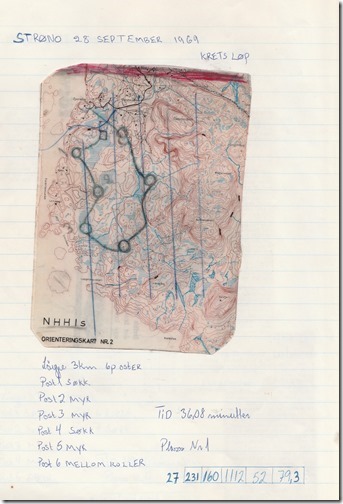 STRØNO 28 SEPTEMBER 1969
KRETS LØP
NHHIs
ORIENTERINGSKART NR.2
Løype 3km 6poster
Post 1 SØKK
Post 2 MYR
Post 3 MYR
TID 36,08 minutter
Post 4 SØKK
Post 5 MYR
Plass Nr 1
Post 6 MELLOM KOLLER
27 231 160 1112 52 79,3